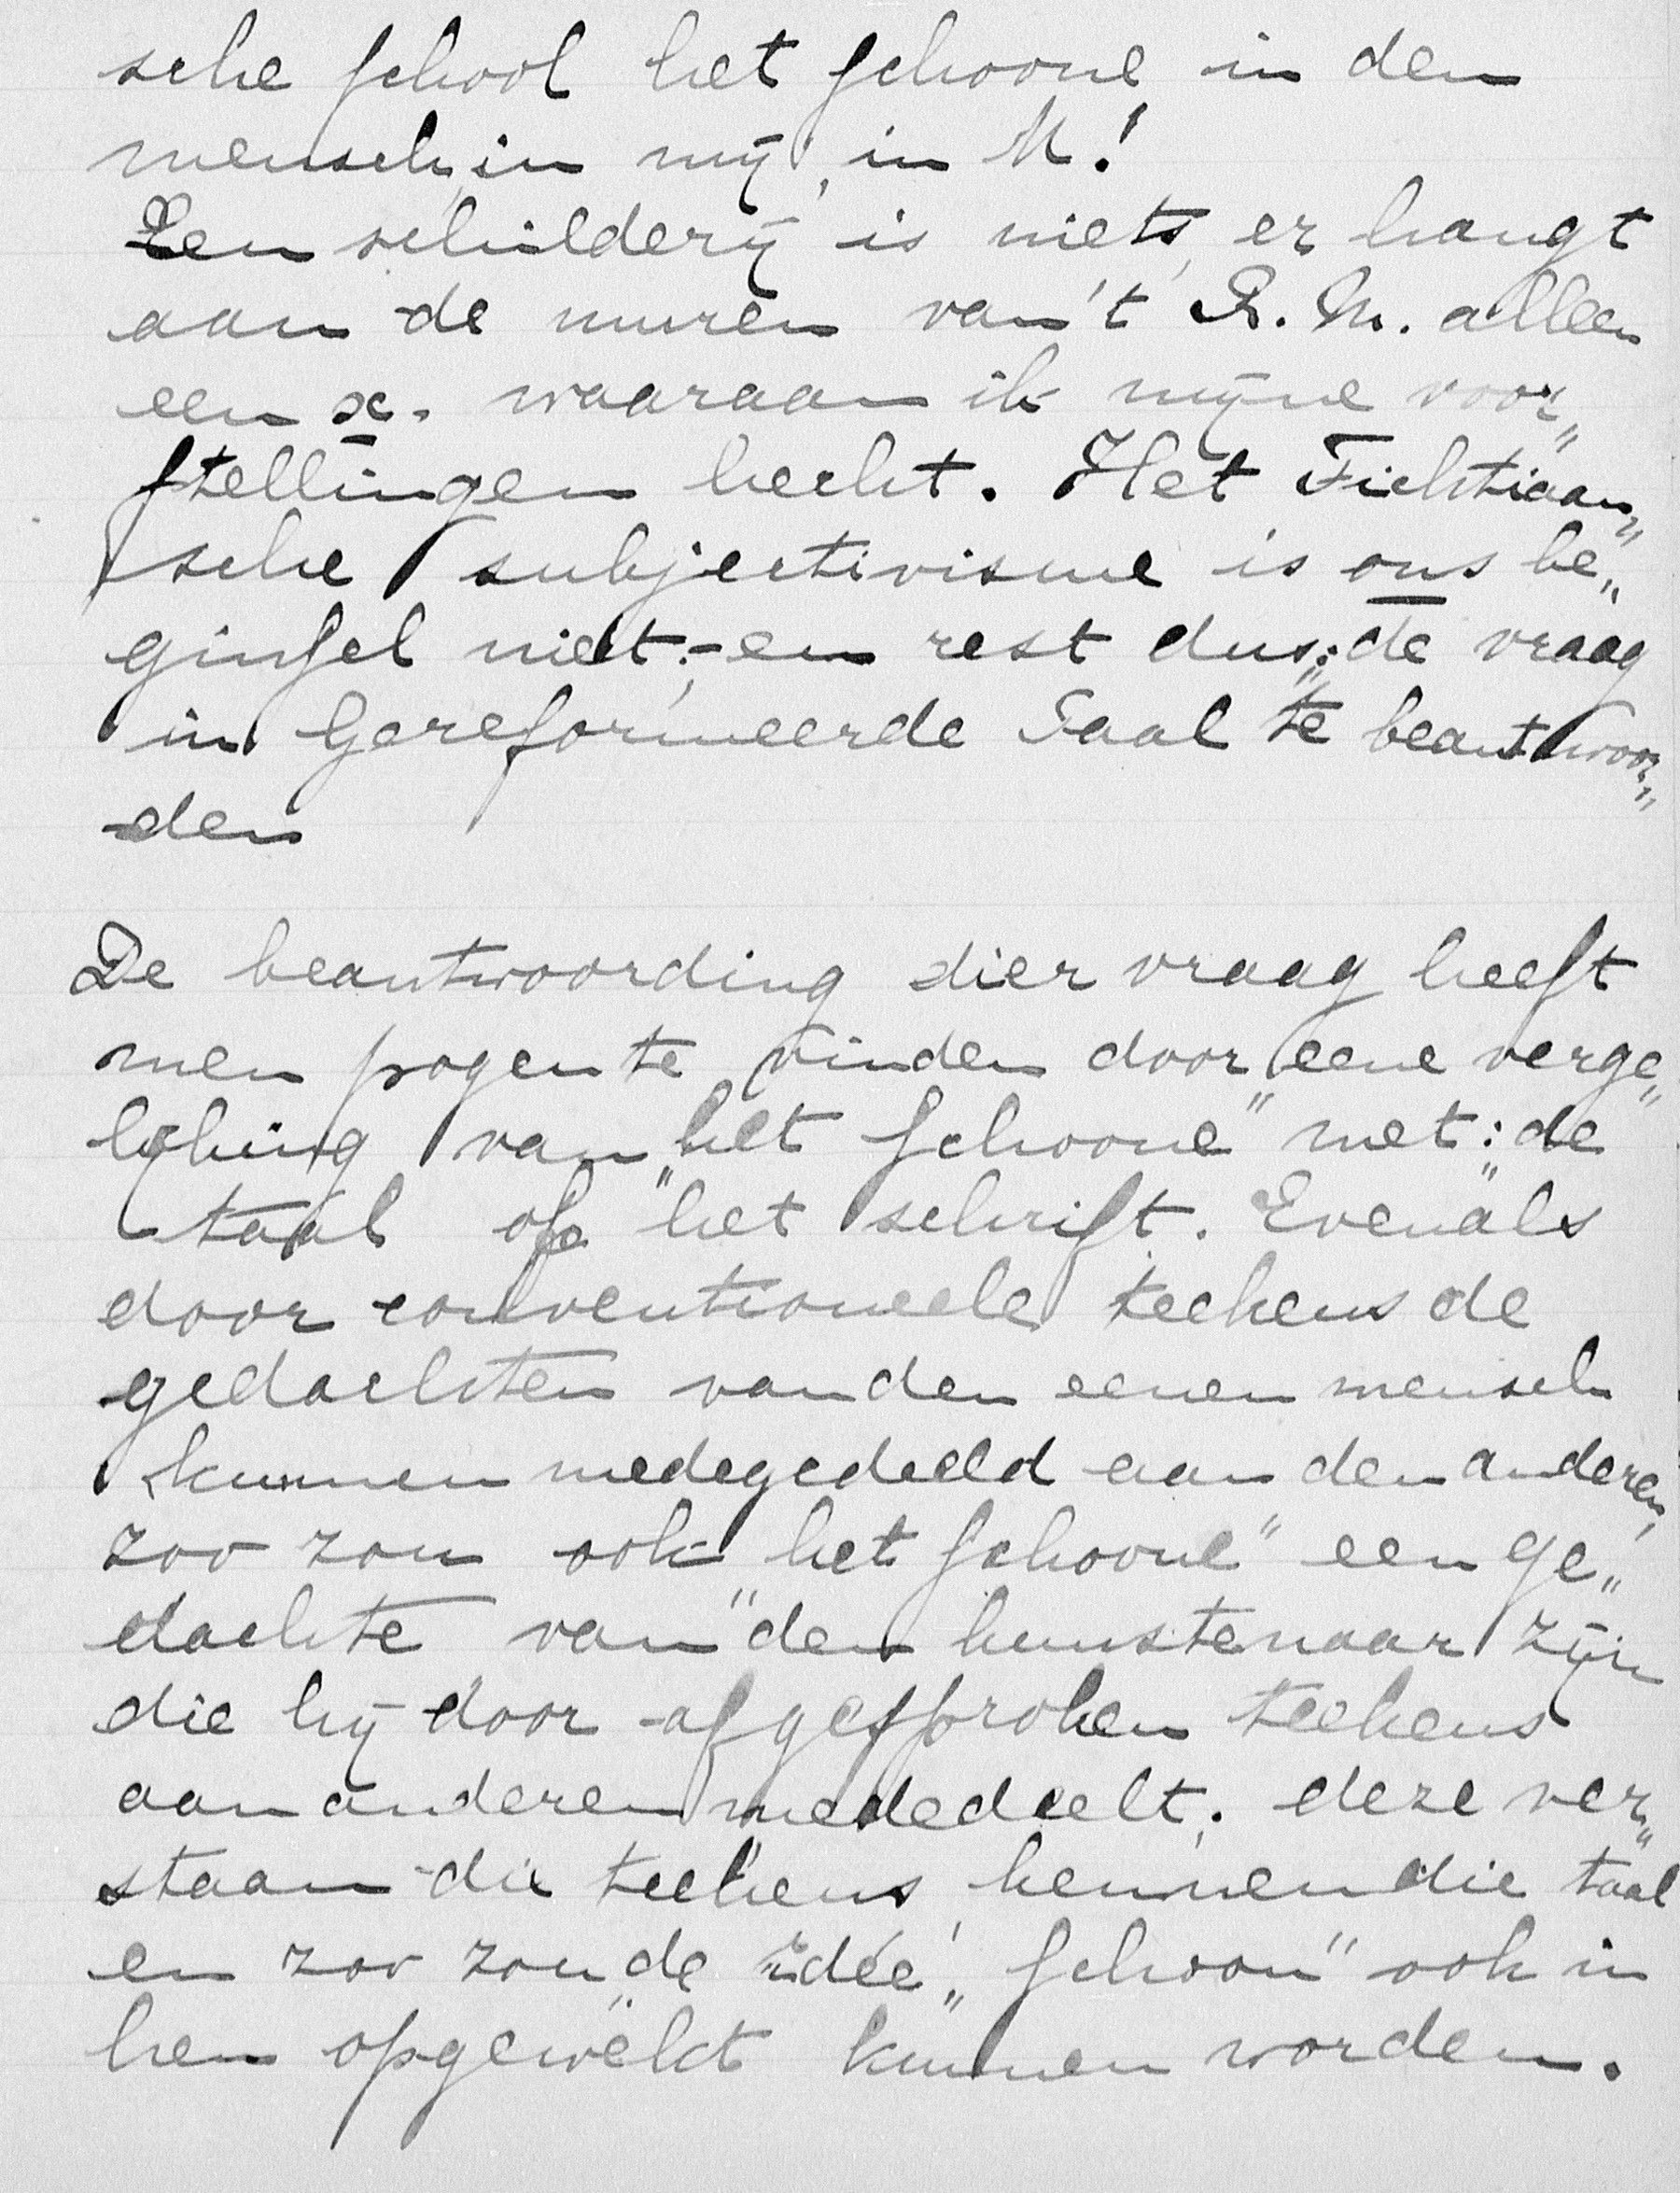 sche school het schoone in den
mensch, in mij, in M!
Een schilderij is niets, er hangt
aan de muren van 't R. M. alleen
een x. waaraan ik mijne voor„
stellingen hecht. Het Fichtiaan„
sche subjectivisme is ons be„
ginsel niet; - en rest dus: de vraag
in Gereformeerde Taal te beantwoor„
den
De beantwoording dier vraag heeft
men pogen te vinden door eene verge„
lijking van „het schoone" met: de
taal of het schrift. Evenals
door conventioneele teekens de
gedachten van den eenen mensch
kunnen medegedeeld aan den anderen,
zoo zou ook „het schoone" een ge„
dachte van den kunstenaar zijn
die hij door afgesproken teekens
aan anderen mededeelt; deze ver„
staan die teekens, kennen die taal
en zoo zou de idée „schoon" ook in
hen opgewekt kunnen worden.